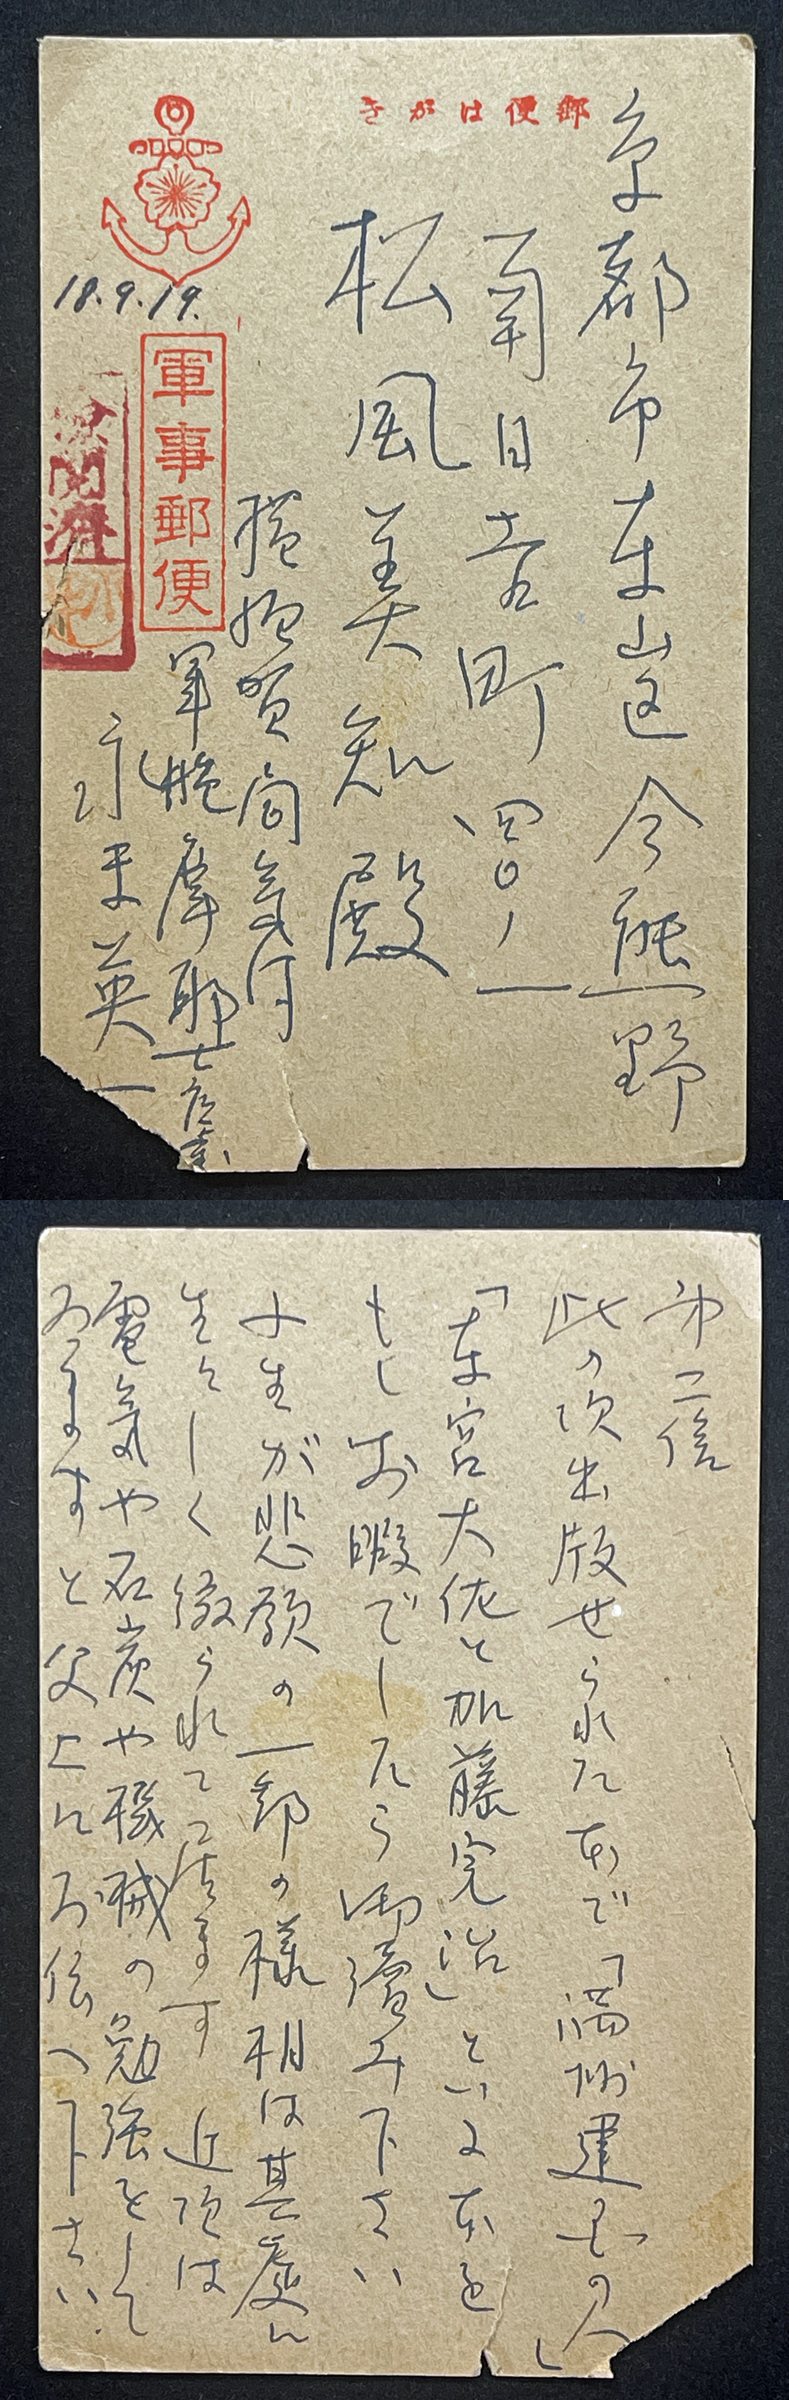 郵便はがき
京都市東山区今熊野
南日吉町四〇ノ一
松風美知殿
18.9.19.
軍事郵便
検閲済
横須賀局気付
軍艦摩耶士官室
英一
第二信
此の次出版せられた本で「満州建国の人」
「東宮大佐と加藤完治」といふ本を
もしお暇でしたら御読み下さい
小生が悲願の一部の様相は其処に
生々しく綴られてゐます 近頃は
電気や石炭や機械の勉強をして
ゐますと父上にお伝へ下さい